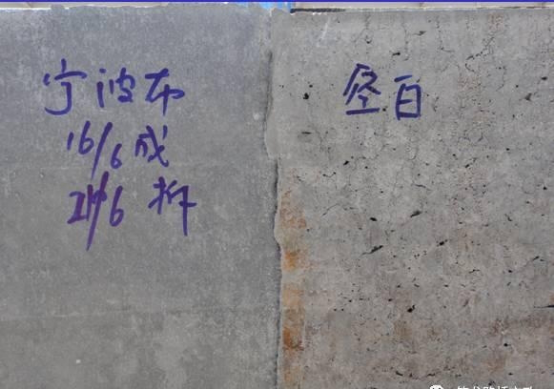 宁波布
16/6成
21/6拆
空白